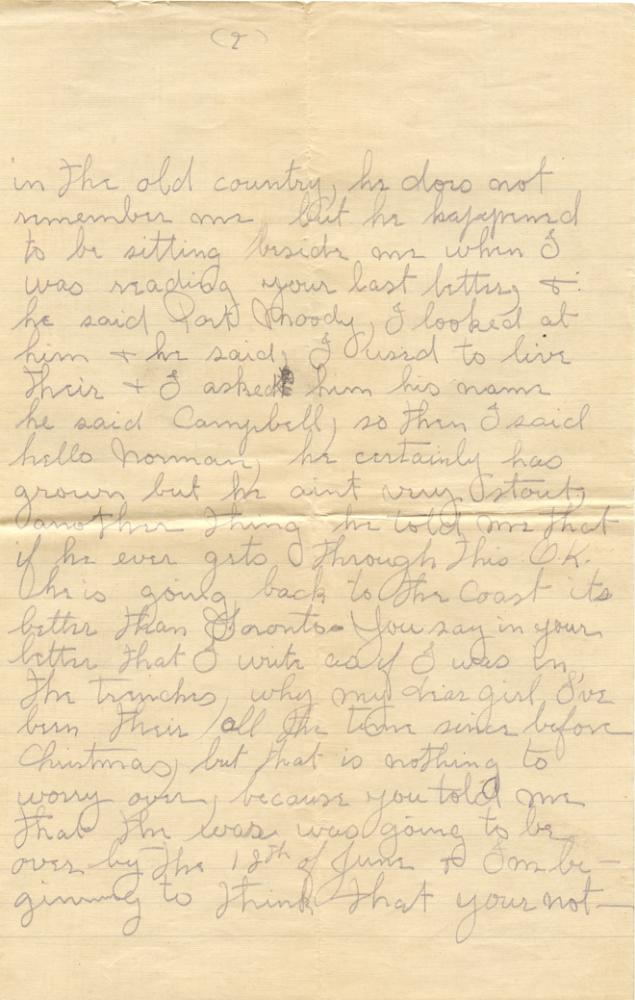 (2)
in the old country, he does not
remember me but he happened
to be sitting beside me when I
was reading your last letter, &
he said Port Moody, I looked at
him & he said, I used to live
their & I asked him his name
he said Campbell, so then I said
hello Norman, he certainly has
grown but he aint very stout,
another thing he told me that
if he ever gets through this O.K.
he is going back to the Coast its
better than Toronto. You say in your
letter that I write as if I was in
the trenches, why my dear girl, I've
been their all the time since before
Christmas, but that is nothing to
worry over, because you told me
that the war was going to be
over by the 18th of June & I'm be-
gining to think that your not-